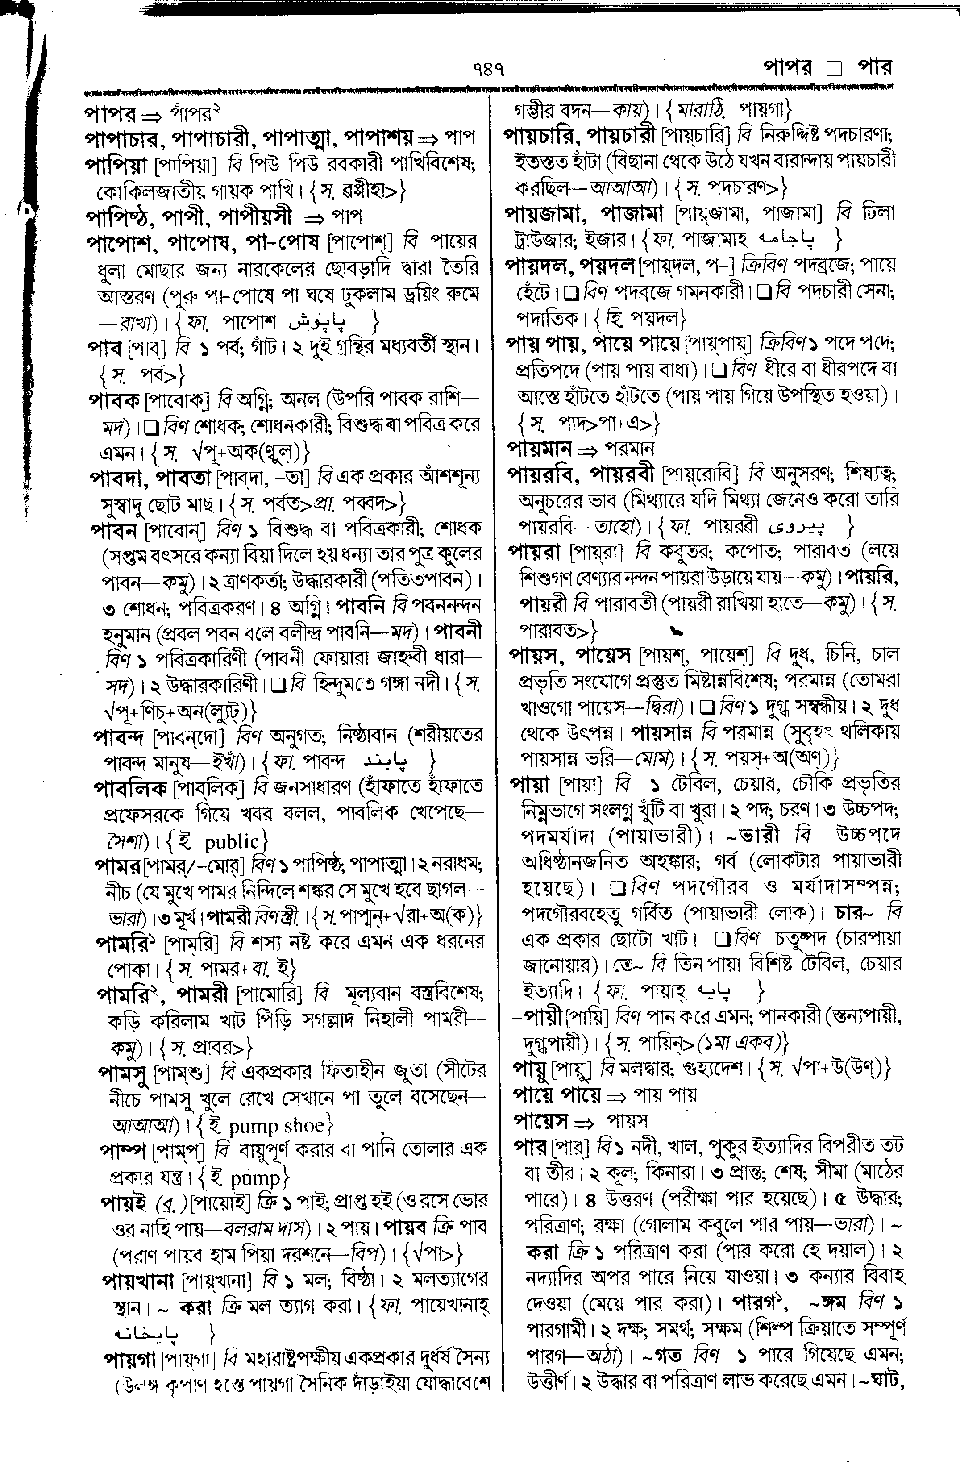 ৭৪৭
পাপর □ পার
পাপর ⇒ পাঁপর২
পাপাচার, পাপাচারী, পাপাত্মা, পাপাশয় ⇒ পাপ
পাপিয়া [পাপিয়া] বি পিউ পিউ রবকারী পাখিবিশেষ;
কোকিলজাতীয় গায়ক পাখি। {স. বপ্পীহা>}
পাপিষ্ঠ, পাপী, পাপীয়সী ⇒ পাপ
পাপোশ, পাপোষ, পা-পোষ [পাপোশ্] বি পায়ের
ধুলা মোছার জন্য নারকেলের ছোবড়াদি দ্বারা তৈরি
আস্তরণ (পুরু পা-পোষে পা ঘষে ঢুকলাম ড্রয়িং রুমে
—রাখা)। {ফা. পাপোশ پاپوش }
পাব [পাব্] বি ১ পর্ব; গাঁট। ২ দুই গ্রন্থির মধ্যবর্তী স্থান।
{স. পর্ব>}
পাবক [পাবোক্] বি অগ্নি; অনল (উপরি পাবক রাশি—
মদ)। ❑ বিণ শোধক; শোধনকারী; বিশুদ্ধ বা পবিত্র করে
এমন। {স. √পূ+অক(ণ্বুল্)}
পাবদা, পাবতা [পাব্‌দা, –তা] বি এক প্রকার আঁশশূন্য
সুস্বাদু ছোট মাছ। {স. পর্বত>প্রা. পব্বদ>}
পাবন [পাবোন্] বিণ ১ বিশুদ্ধ বা পবিত্রকারী; শোধক
(সপ্তম বৎসরে কন্যা বিয়া দিলে হয় ধন্যা তার পুত্র কুলের
পাবন—কমু)। ২ ত্রাণকর্তা; উদ্ধারকারী (পতিতপাবন)।
৩ শোধন; পবিত্রকরণ। ৪ অগ্নি। পাবনি বি পবননন্দন
হনুমান (প্রবল পবন বলে বলীন্দ্র পাবনি—মদ)। পাবনী
বিণ ১ পবিত্রকারিণী (পাবনী ফোয়ারা জাহ্নবী ধারা—
সদ)। ২ উদ্ধারকারিণী। ❑ বি হিন্দুমতে গঙ্গা নদী। {স.
√পূ+ণিচ্+অন(ল্যুট্)}
পাবন্দ [পাবন্‌দো] বিণ অনুগত; নিষ্ঠাবান (শরীয়তের
পাবন্দ মানুষ—ইখাঁ)। {ফা. পাবন্দ پابند }
পাবলিক [পাব্‌লিক্] বি জনসাধারণ (হাঁফাতে হাঁফাতে
প্রফেসরকে গিয়ে খবর বলল, পাবলিক খেপেছে—
সৈশা)। {ই. public}
পামর [পামর্/–মোর্] বিণ ১ পাপিষ্ঠ; পাপাত্মা। ২ নরাধম;
নীচ (যে মুখে পামর নিন্দিলে শঙ্কর সে মুখে হবে ছাগল—
ভারা)। ৩ মূর্খ। পামরী বিণস্ত্রী। {স. পাপ্মন্+√রা+অ(ক)}
পামরি১ [পাম্‌রি] বি শস্য নষ্ট করে এমন এক ধরনের
পোকা। {স. পামর+বা. ই}
পামরি২, পামরী [পামোরি] বি মূল্যবান বস্ত্রবিশেষ;
কড়ি করিলাম খাট পিঁড়ি সগল্লাদ নিহালী পামরী—
কমু)। {স. প্রাবর>}
পামসু [পাম্‌শু] বি একপ্রকার ফিতাহীন জুতা (সীটের
নীচে পামসু খুলে রেখে সেখানে পা তুলে বসেছেন—
আআআ)। {ই. pump shoe}
পাম্প [পাম্‌প্] বি বায়ুপূর্ণ করার বা পানি তোলার এক
প্রকার যন্ত্র। {ই. pump}
পায়ই (ব্র.) [পায়োই] ক্রি ১ পাই; প্রাপ্ত হই (ও রসে ভোর
ওর নাহি পায়—বলরাম দাস)। ২ পায়। পায়ব ক্রি পাব
(পরাণ পায়ব হাম পিয়া দরশনে—বিপ)। {√পা>}
পায়খানা [পায়্‌খানা] বি ১ মল; বিষ্ঠা। ২ মলত্যাগের
স্থান। ~ করা ক্রি মল ত্যাগ করা। {ফা. পায়েখানাহ্
پايخانه }
পায়গা [পায়্‌গা] বি মহারাষ্ট্রপক্ষীয় একপ্রকার দুর্ধর্ষ সৈন্য
(উলঙ্গ কৃপাণ হস্তে পায়গা সৈনিক দাঁড়াইয়া যোদ্ধাবেশে
গম্ভীর বদন—কায়)। {মারাঠি. পায়গা}
পায়চারি, পায়চারী [পায়্‌চারি] বি নিরুদ্দিষ্ট পদচারণা;
ইতস্তত হাঁটা (বিছানা থেকে উঠে যখন বারান্দায় পায়চারী
করছিল—আআআ)। {স. পদচারণ>}
পায়জামা, পাজামা [পায়্‌জামা, পাজামা] বি ঢিলা
ট্রাউজার; ইজার। {ফা. পাজামাহ্ پاجامه }
পায়দল, পয়দল [পায়্‌দল্, প–] ক্রিবিণ পদব্রজে; পায়ে
হেঁটে। ❑ বিণ পদব্রজে গমনকারী। ❑ বি পদচারী সেনা;
পদাতিক। {হি. পয়দল}
পায় পায়, পায়ে পায়ে [পায়্‌পায়্] ক্রিবিণ ১ পদে পদে;
প্রতিপদে (পায় পায় বাধা)। ❑ বিণ ধীরে বা ধীরপদে বা
আস্তে হাঁটতে হাঁটতে (পায় পায় গিয়ে উপস্থিত হওয়া)।
{স. পাদ>পা+এ>}
পায়মান ⇒ পরমান
পায়রবি, পায়রবী [পায়্‌রোবি] বি অনুসরণ; শিষ্যত্ব;
অনুচরের ভাব (মিথ্যারে যদি মিথ্যা জেনেও করো তারি
পায়রবি—তাহো)। {ফা. পায়রবী پیروی }
পায়রা [পায়্‌রা] বি কবুতর; কপোত; পারাবত (লয়ে
শিশুগণ বেণ্যার নন্দন পায়রা উড়ায়ে যায়—কমু)। পায়রি,
পায়রী বি পারাবতী (পায়রী রাখিয়া হাতে—কমু)। {স.
পারাবত>}
পায়স, পায়েস [পায়শ্, পায়েশ্] বি দুধ, চিনি, চাল
প্রভৃতি সংযোগে প্রস্তুত মিষ্টান্নবিশেষ; পরমান্ন (তোমরা
খাওগো পায়েস—দ্বিরা)। ❑ বিণ ১ দুগ্ধ সম্বন্ধীয়। ২ দুধ
থেকে উৎপন্ন। পায়সান্ন বি পরমান্ন (সুবৃহৎ থলিকায়
পায়সান্ন ভরি—মোম)। {স. পয়স্+অ(অণ্)}
পায়া [পায়া] বি ১ টেবিল, চেয়ার, চৌকি প্রভৃতির
নিম্নভাগে সংলগ্ন খুঁটি বা খুরা। ২ পদ; চরণ। ৩ উচ্চপদ;
পদমর্যাদা (পায়াভারী)। ~ভারী বি উচ্চপদে
অধিষ্ঠানজনিত অহঙ্কার; গর্ব (লোকটার পায়াভারী
হয়েছে)। ❑ বিণ পদগৌরব ও মর্যাদাসম্পন্ন;
পদগৌরবহেতু গর্বিত (পায়াভারী লোক)। চার~ বি
এক প্রকার ছোটো খাট। ❑ বিণ চতুষ্পদ (চারপায়া
জানোয়ার)। তে~ বি তিন পায়া বিশিষ্ট টেবিল, চেয়ার
ইত্যাদি। {ফা. পায়াহ্ پایه }
-পায়ী [পায়ি] বিণ পান করে এমন; পানকারী (স্তন্যপায়ী,
দুগ্ধপায়ী)। {স. পায়িন্>(১মা একব)}
পায়ু [পায়ু] বি মলদ্বার; গুহ্যদেশ। {স. √পা+উ(উণ্)}
পায়ে পায়ে ⇒ পায় পায়
পায়েস ⇒ পায়স
পার [পার্] বি ১ নদী, খাল, পুকুর ইত্যাদির বিপরীত তট
বা তীর। ২ কূল; কিনারা। ৩ প্রান্ত; শেষ; সীমা (মাঠের
পারে)। ৪ উত্তরণ (পরীক্ষা পার হয়েছে)। ৫ উদ্ধার;
পরিত্রাণ; রক্ষা (গোলাম কবুলে পার পায়—ভারা)। ~
করা ক্রি ১ পরিত্রাণ করা (পার করো হে দয়াল)। ২
নদ্যাদির অপর পারে নিয়ে যাওয়া। ৩ কন্যার বিবাহ
দেওয়া (মেয়ে পার করা)। পারগ১, ~ঙ্গম বিণ ১
পারগামী। ২ দক্ষ; সমর্থ; সক্ষম (শিল্প ক্রিয়াতে সম্পূর্ণ
পারগ—অঠা)। ~গত বিণ ১ পারে গিয়েছে এমন;
উত্তীর্ণ। ২ উদ্ধার বা পরিত্রাণ লাভ করেছে এমন। ~ঘাট,